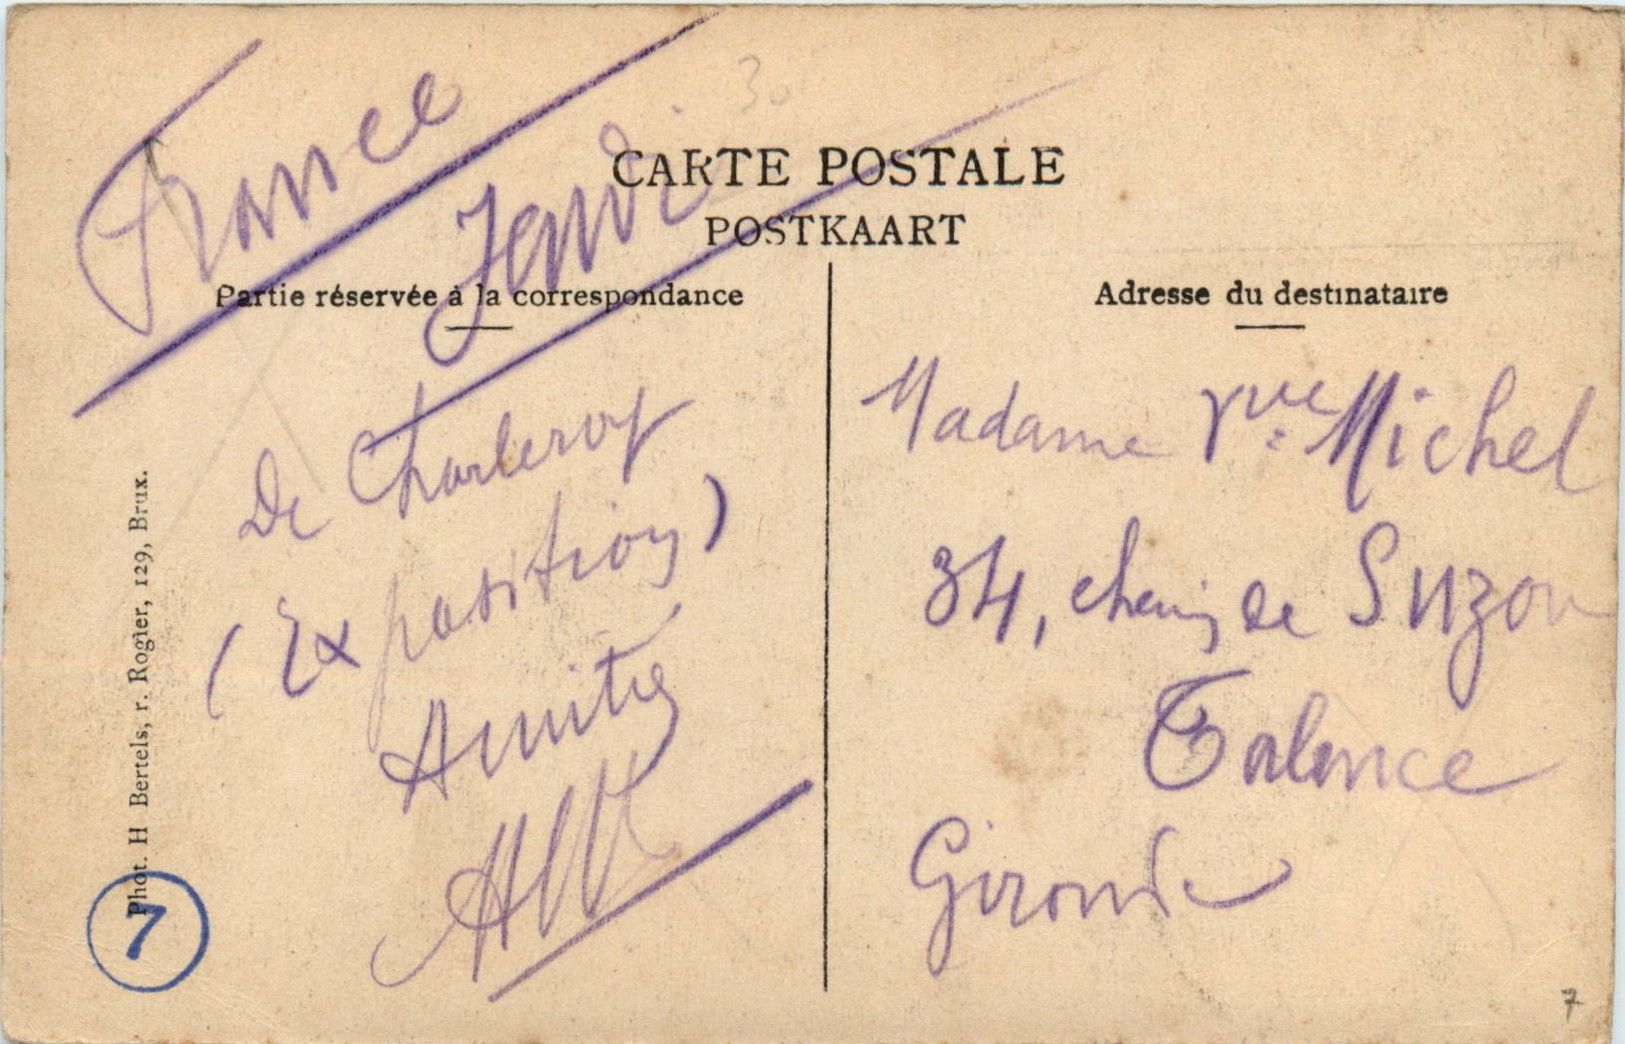 30
CARTE POSTALE
POSTKAART
Partie réservée à la correspondance
Adresse du destinataire
France
Jeudi
De Charleroy
(Exposition)
Amitiés
Madame Vve Michel
34, chemin de Suzon
Talence
Gironde
Phot. H Bertels, r. Rogier, 129, Brux.
7
7